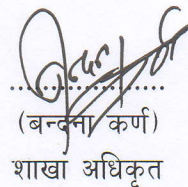 (बन्दना कर्ण)
शाखा अधिकृत